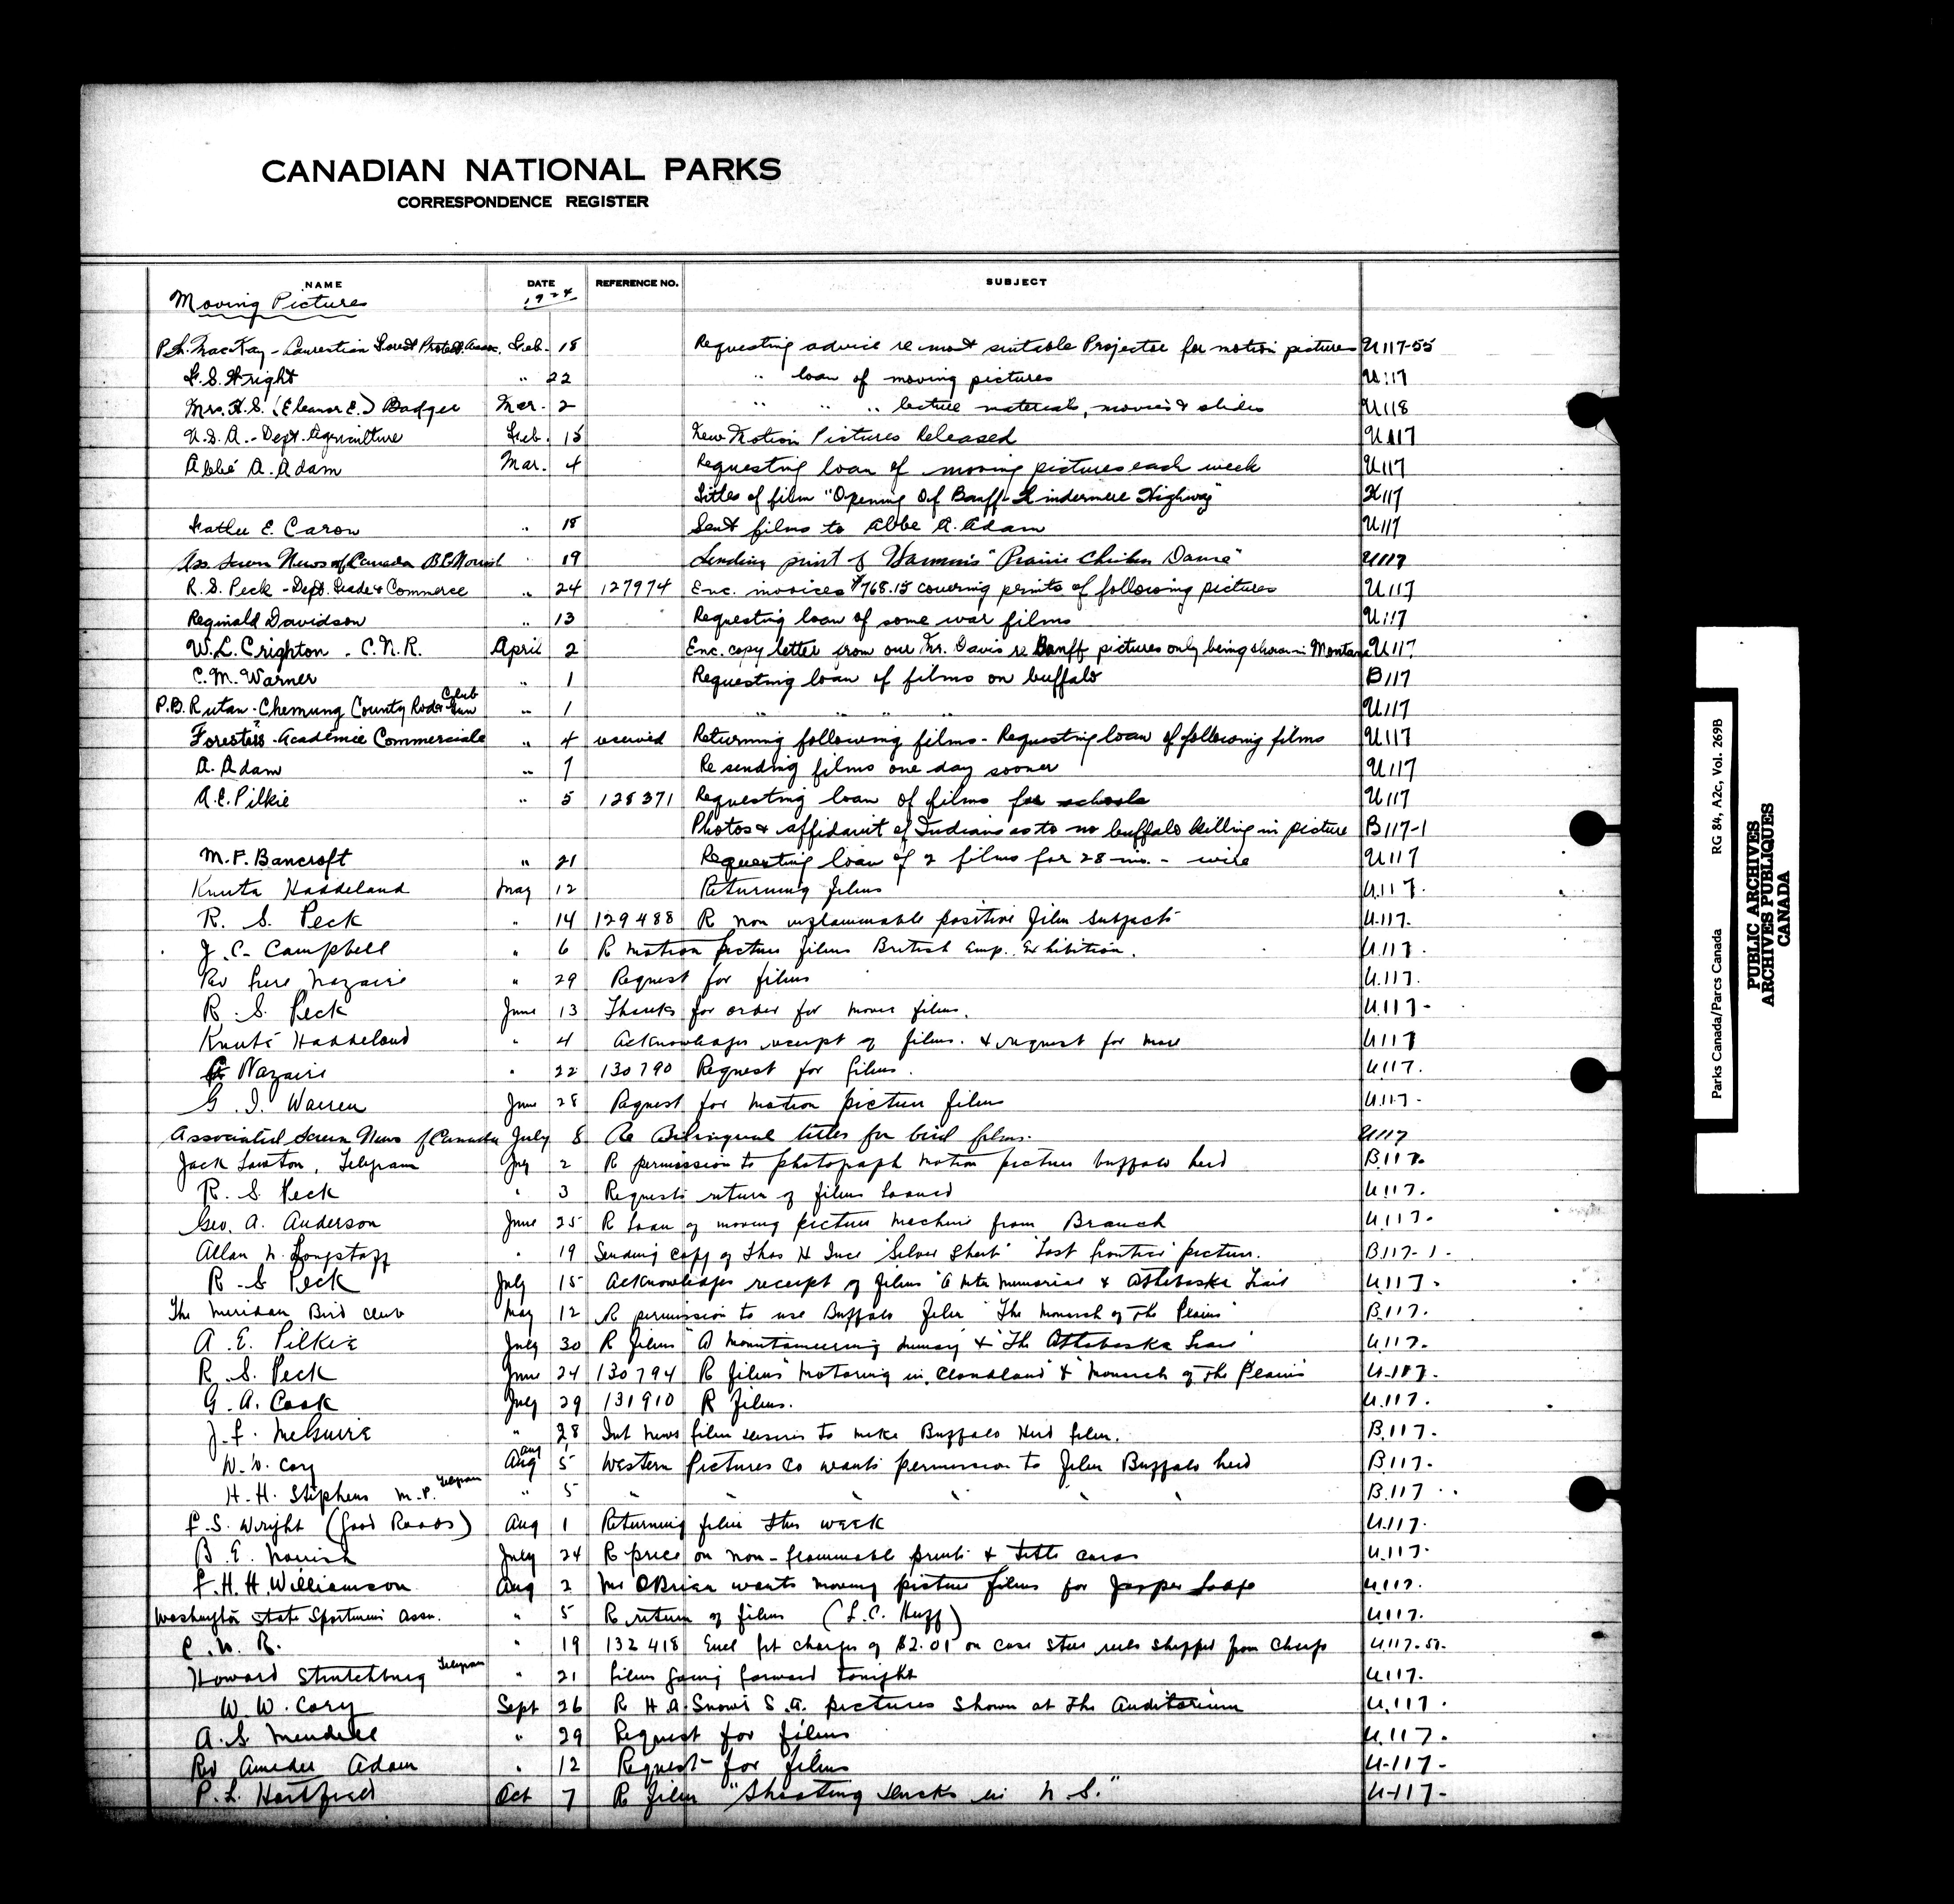 CANADIAN NATIONAL PARKS
CORRESPONDENCE REGISTER
NAME DATE REFERENCE NO. SUBJECT
Moving Pictures 1924
P.L. MacKay - Laurentian Forest Protect. Assoc. Feb. 18 Requesting advice re most suitable Projector for motion pictures U117-55
F.S. Wright " 22 " loan of moving pictures U117
Mrs. H.S. (Eleanor E.) Badger Mar. 2 " " " lecture materials, movies & slides U118
U.S.A. - Dept. Agriculture Feb. 15 New Motion Pictures Released U117
Abbé A. Adam Mar. 4 Requesting loan of moving pictures each week U117
Titles of film "Opening of Banff-Windermere Highway" K117
Father E. Caron " 18 Sent films to Abbe A. Adam U117
Ass Screen News of Canada B.E. Norrish " 19 Sending print of "Prairie Chicken Dance" U117
R.S. Peck - Dept. Trade & Commerce " 24 127974 Enc. invoices $768.15 covering prints of following pictures U117
Reginald Davidson " 13 Requesting loan of some war films U117
W.L. Crighton - C.N.R. April 2 Enc. copy letter from our Mr. Davis re Banff pictures only being shown in Montana U117
C.M. Warner " 1 Requesting loan of films on buffalo B117
P.B. Rutan - Chemung County Rod & Gun Club " 1 " " " " U117
Forestess - Académie Commerciale " 4 Returning following films - Requesting loan of following films U117
A. Adam " 7 Re sending films one day sooner U117
A.E. Pilkie " 5 128371 Requesting loan of films for schools U117
Photos & affidavit of Indians as to no buffalo killing in picture B117-1
M.F. Bancroft " 21 Requesting loan of 2 films for 28 - wire U117
Knute Haddeland May 12 Returning films U.117.
R. S. Peck " 14 129488 R non inflammable positive film subjects U.117.
J. C. Campbell " 6 R motion picture films British Emp. Exhibition. U.117.
Rev Frere Nazaire " 29 Request for films U.117.
R. S. Peck June 13 Thanks for order for movie films. U.117-
Knute Haddeland " 4 Acknowledges receipt of films. & request for more U117
Nazaire " 22 130790 Request for films. U.117.
G. I. Warren June 28 Request for motion picture films U.117-
Associated Screen News of Canada July 8 Re Bilingual titles for bird films. U117
Jack Lawton, Telegram July 2 R permission to photograph motion picture buffalo herd B.117.
R. S. Peck " 3 Requests return of films loaned U.117.
Geo. A. Anderson June 25 R loan of moving picture machine from Branch U.117.
Allan N. Longstaff " 19 Sending copy of Thos H Ince "Silver Sheet" "Last frontier" picture. B.117-1-
R. S. Peck July 15 Acknowledges receipt of films "A Mtn Memorial & Athabaska Trail U.117.
The Meriden Bird Club May 12 R permission to use Buffalo film "The Monarch of The Plains" B.117.
A. E. Pilkie July 30 R films "A Mountaineering & "The Athabaska Trail" U.117.
R. S. Peck June 24 130794 R films "Motoring in Cloudland" & "Monarch of The Plains" U.117.
G. A. Cook July 29 131910 R films. U.117.
J. F. McGuire " 28 Int News film desires to make Buffalo Herd film. B.117.
W. W. Cory Aug 5 Western Pictures Co wants permission to film Buffalo herd B.117.
H. H. Stephens M.P. Telegram " 5 " " " " " " B.117
F. S. Wright (Good Roads) Aug 1 Returning film this week U.117.
B. E. Norrish July 24 R price on non-flammable prints & title cards U.117.
F. H. H. Williamson Aug 2 Mr O'Brien wants moving picture films for Jasper Lodge U.117.
Washington State Sportsmens Assn. " 5 R return of films (L.C. Huff) U.117.
C. N. R. " 19 132418 Encl frt charges of $2.01 on case steel reels shipped from U.117-50-
Howard Telegram " 21 Films going forward tonight U.117.
W. W. Cory Sept 26 R H.A. Snow's S.A. pictures shown at The Auditorium U.117.
A. S. Mendell " 29 Request for films U.117.
Rev Amedee Adam " 12 Request for films U-117-
P. L. Hartfield Oct 7 R film "Shooting ducks in N.S." U-117-
Parks Canada/Parcs Canada RG 84, A2c, Vol. 269B
PUBLIC ARCHIVES
ARCHIVES PUBLIQUES
CANADA